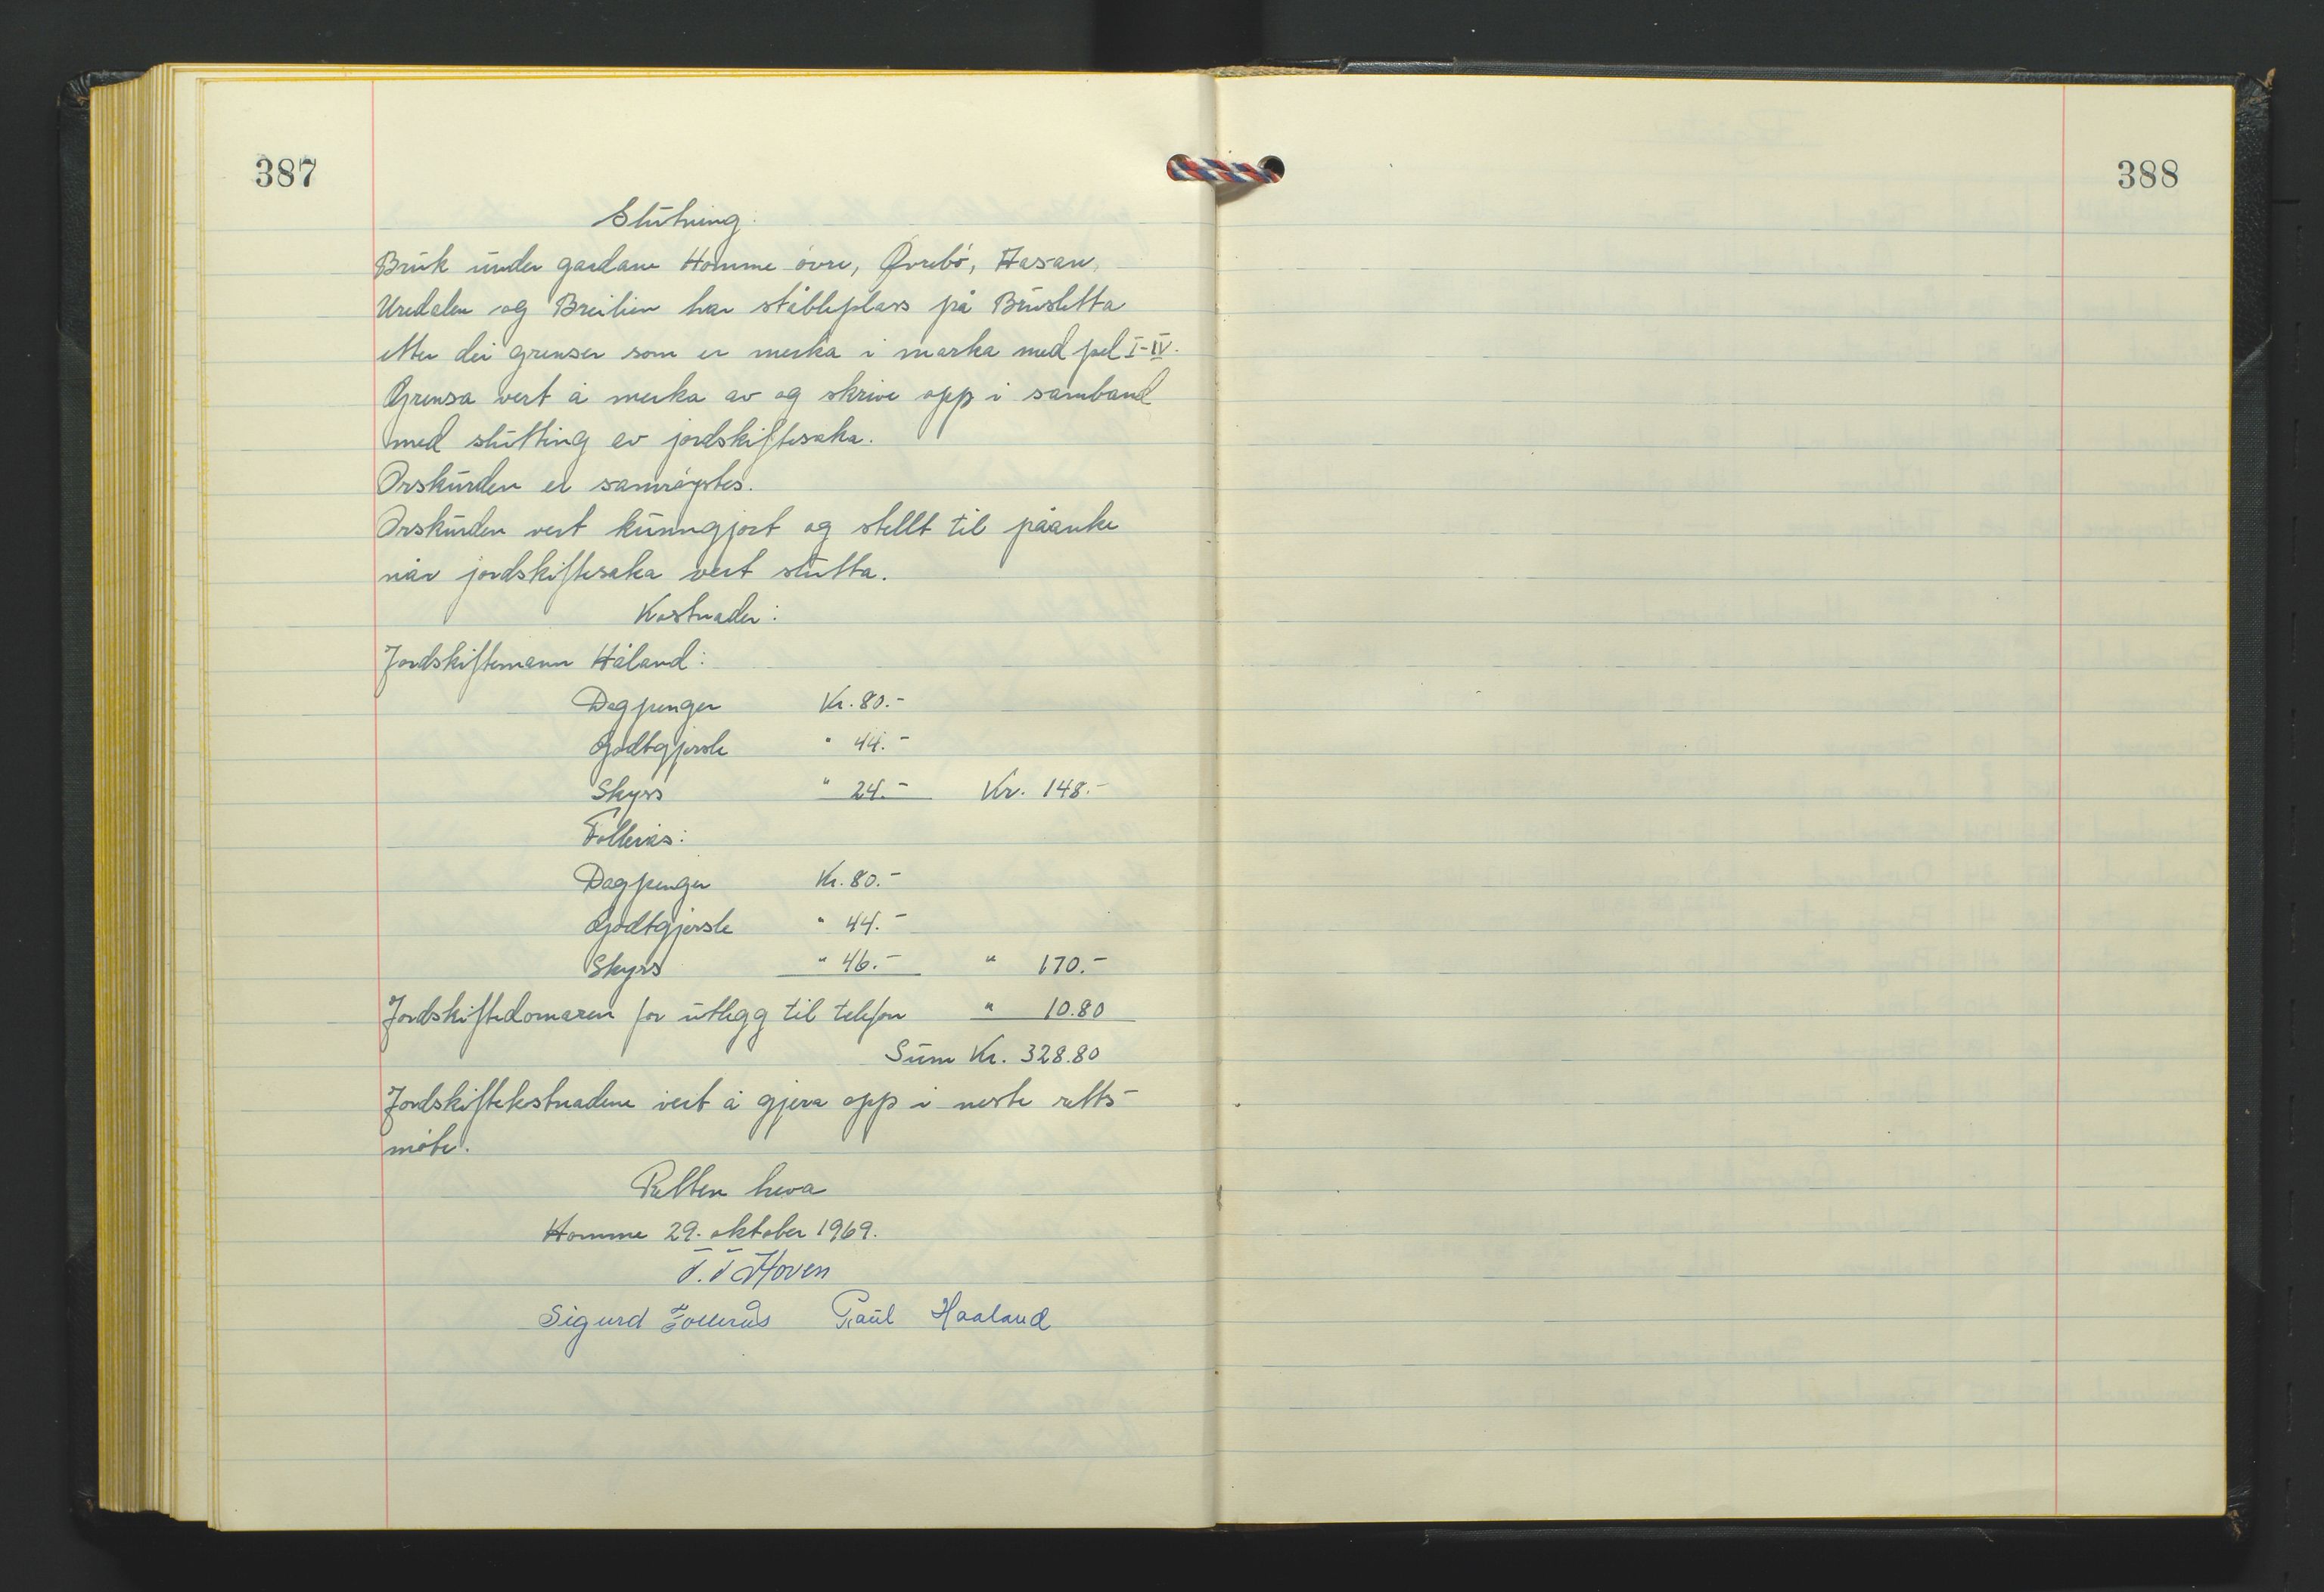 387
388
Slutning:
Bruk under gardane Homme øvre, Øvrebø, Hasan,
Uredalen og Breilien har stableplass på Brusletta
etter dei grenser som er merka i marka med pel I-IV.
Grensa vert å merka av og skrive opp i samband
med slutting av jordskiftesaka.
Orskurden er samrøystes.
Orskurden vert kunngjort og stellt til påanke
når jordskiftesaka vert slutta.
Kostnader:
Jordskiftemann Håland:
Dagpenger Kr. 80.-
Godtgjersle " 44.-
Skyss " 24.- Kr. 148.-
Follerås:
Dagpenger Kr. 80.-
Godtgjersle " 44.-
Skyss " 46.- " 170.-
Jordskiftedomaren for utlegg til telefon " 10.80
Sum Kr. 328.80
Jordskiftekostnadene vert å gjera opp i neste retts-
møte.
Retten heva
Homme 29. oktober 1969.
T. T Hoven
Sigurd Follerås Paul Haaland